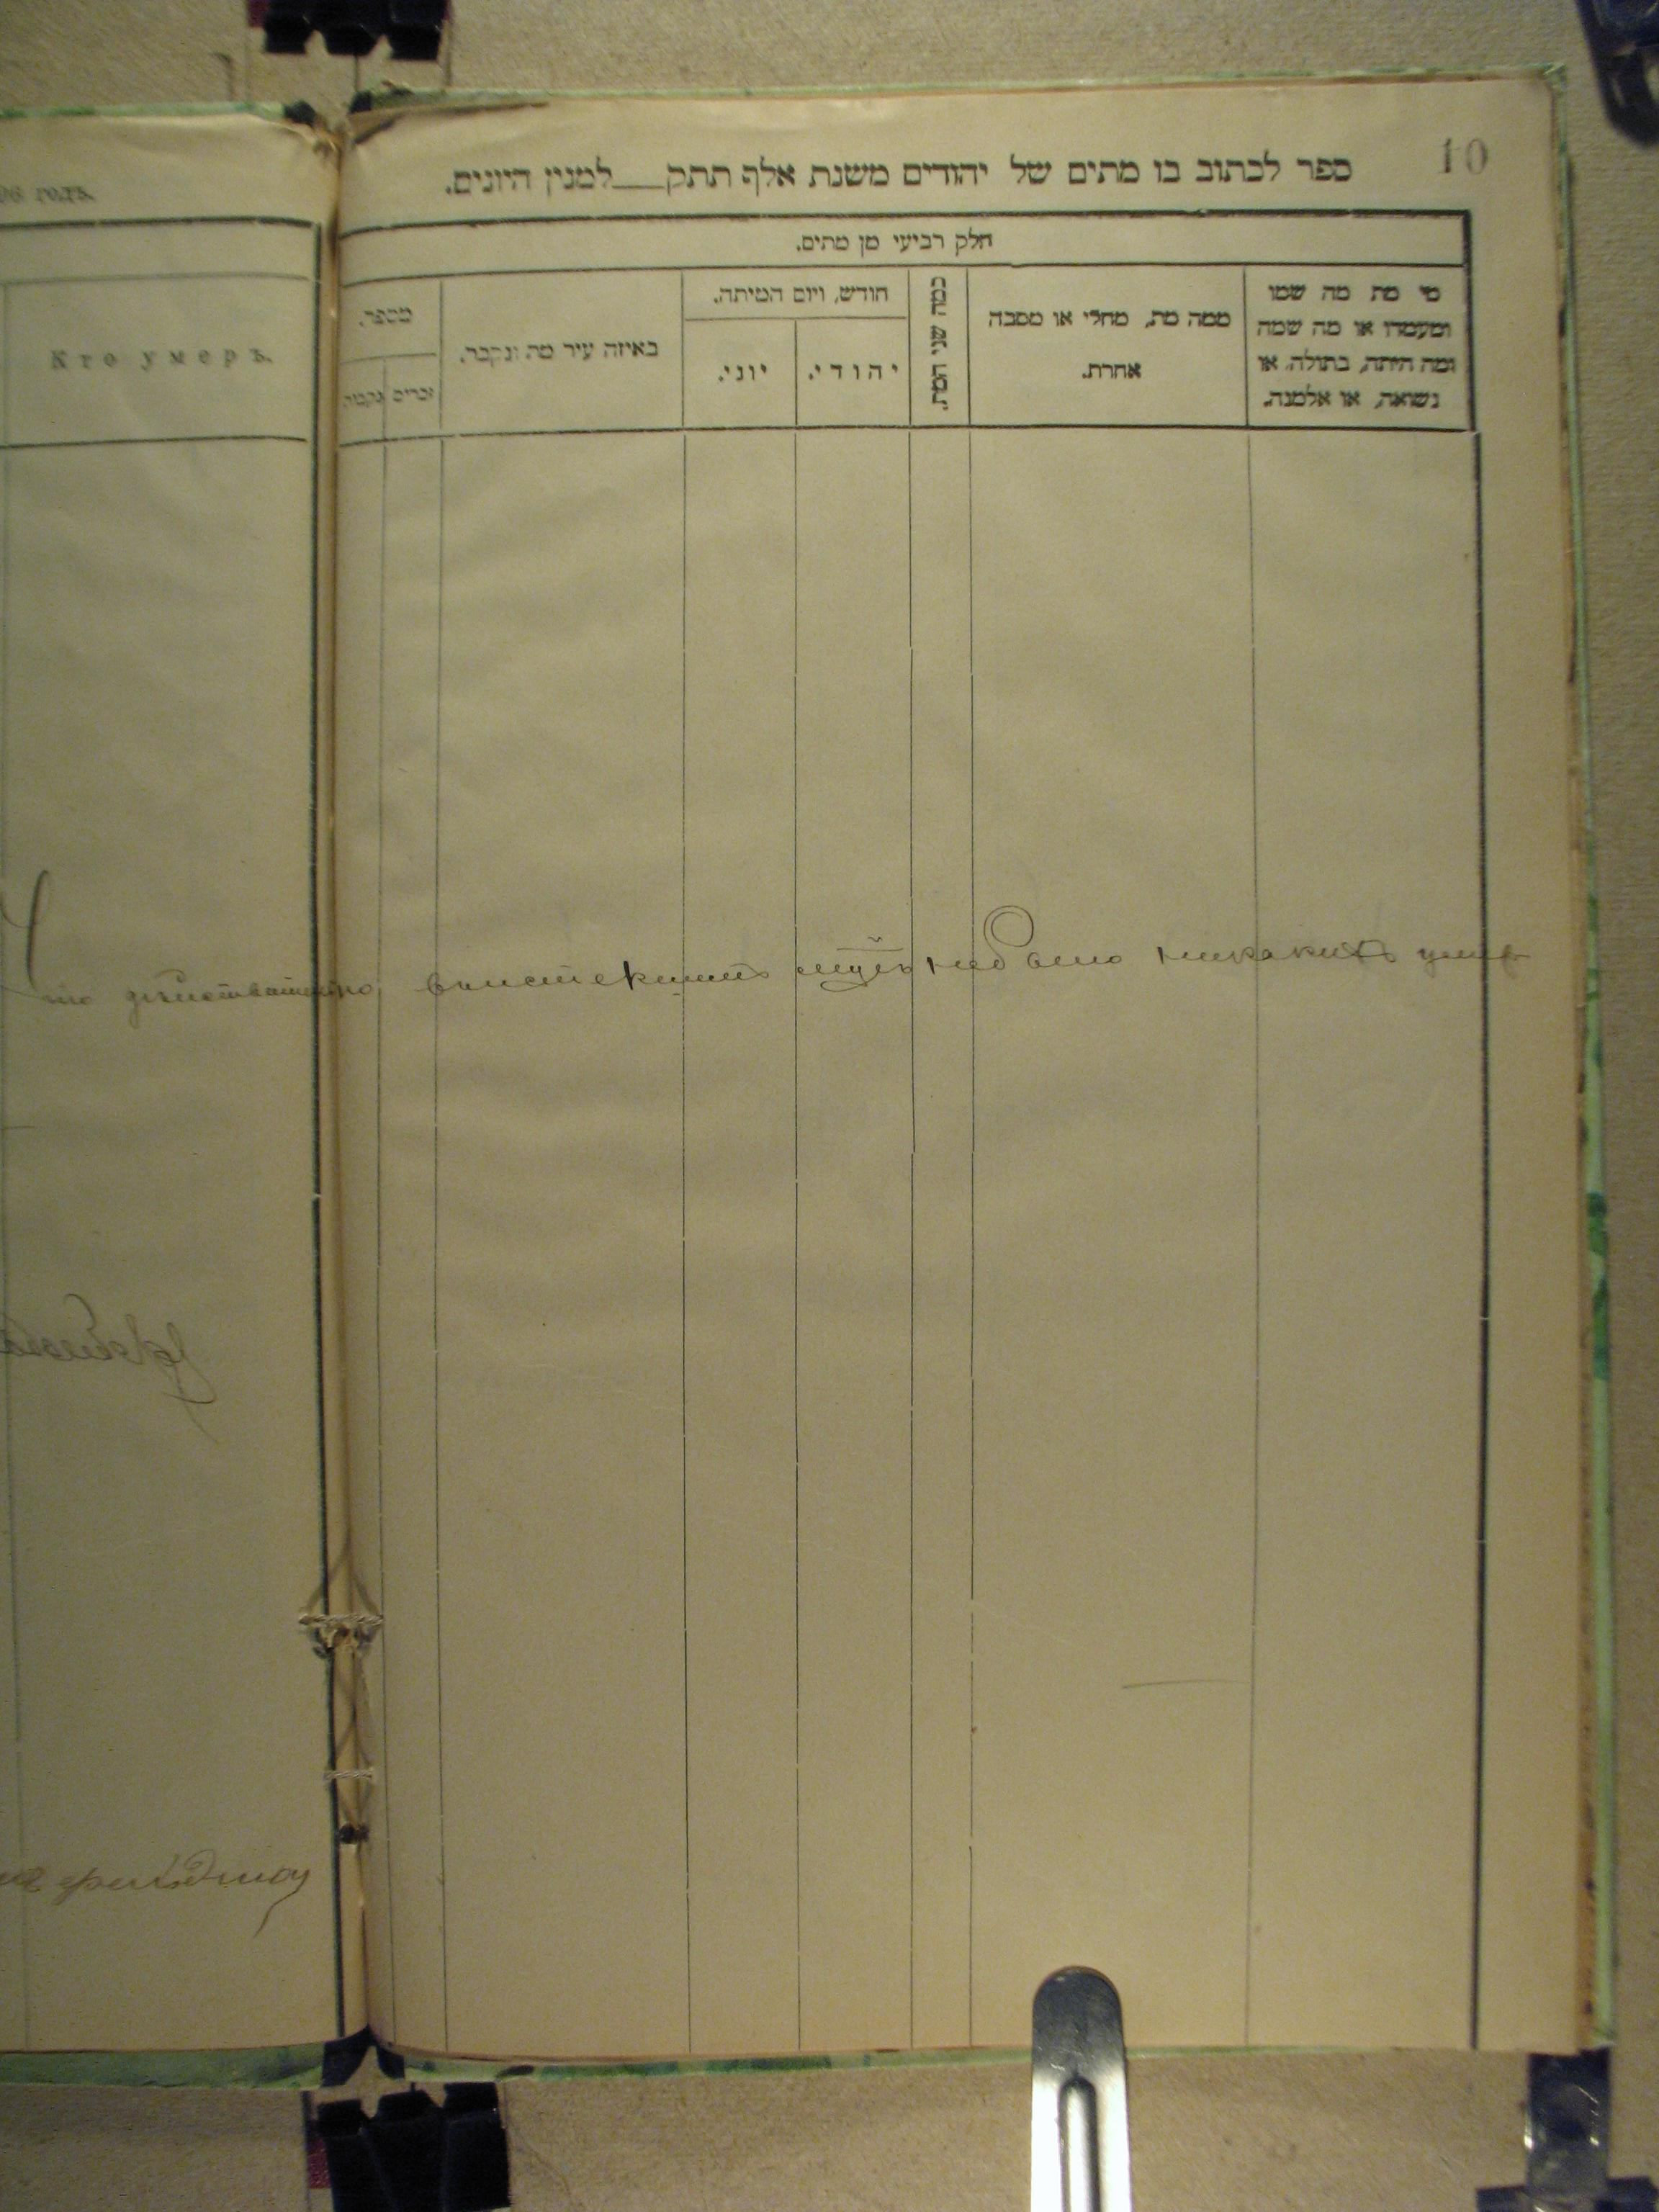 96 годъ.
Кто умеръ.
10
ספר לכתוב בו מתים של יהודים משנת אלף תתק___למנין היונים.
חלק רביעי מן מתים.
מי מת מה שמו
ומעמדו או מה שמה
ומה היתה, בתולה, או
נשואה, או אלמנה.
ממה מת, מחלי או מסבה
אחרת.
כמה שני המת.
חודש, ויום המיתה.
יהודי.
יוני.
באיזה עיר מת ונקבר.
מספר.
זכרים
נקבות
что действительно въ истекшемъ году не было никакихъ